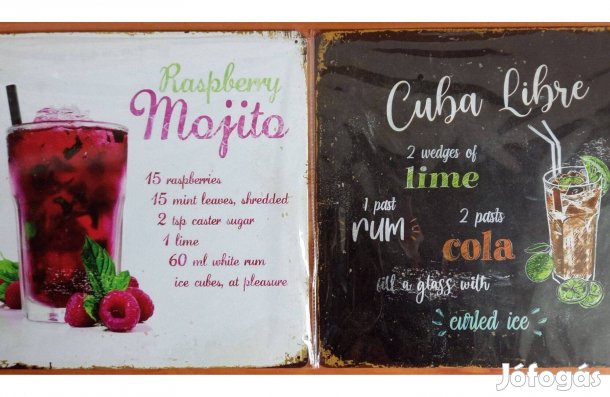 Raspberry
Mojito
15 raspberries
15 mint leaves, shredded
2 tsp caster sugar
1 lime
60 ml white rum
ice cubes, at pleasure
Cuba Libre
2 wedges of
lime
1 past
rum
2 pasts
cola
fill a glass with
curled ice
Jófogás